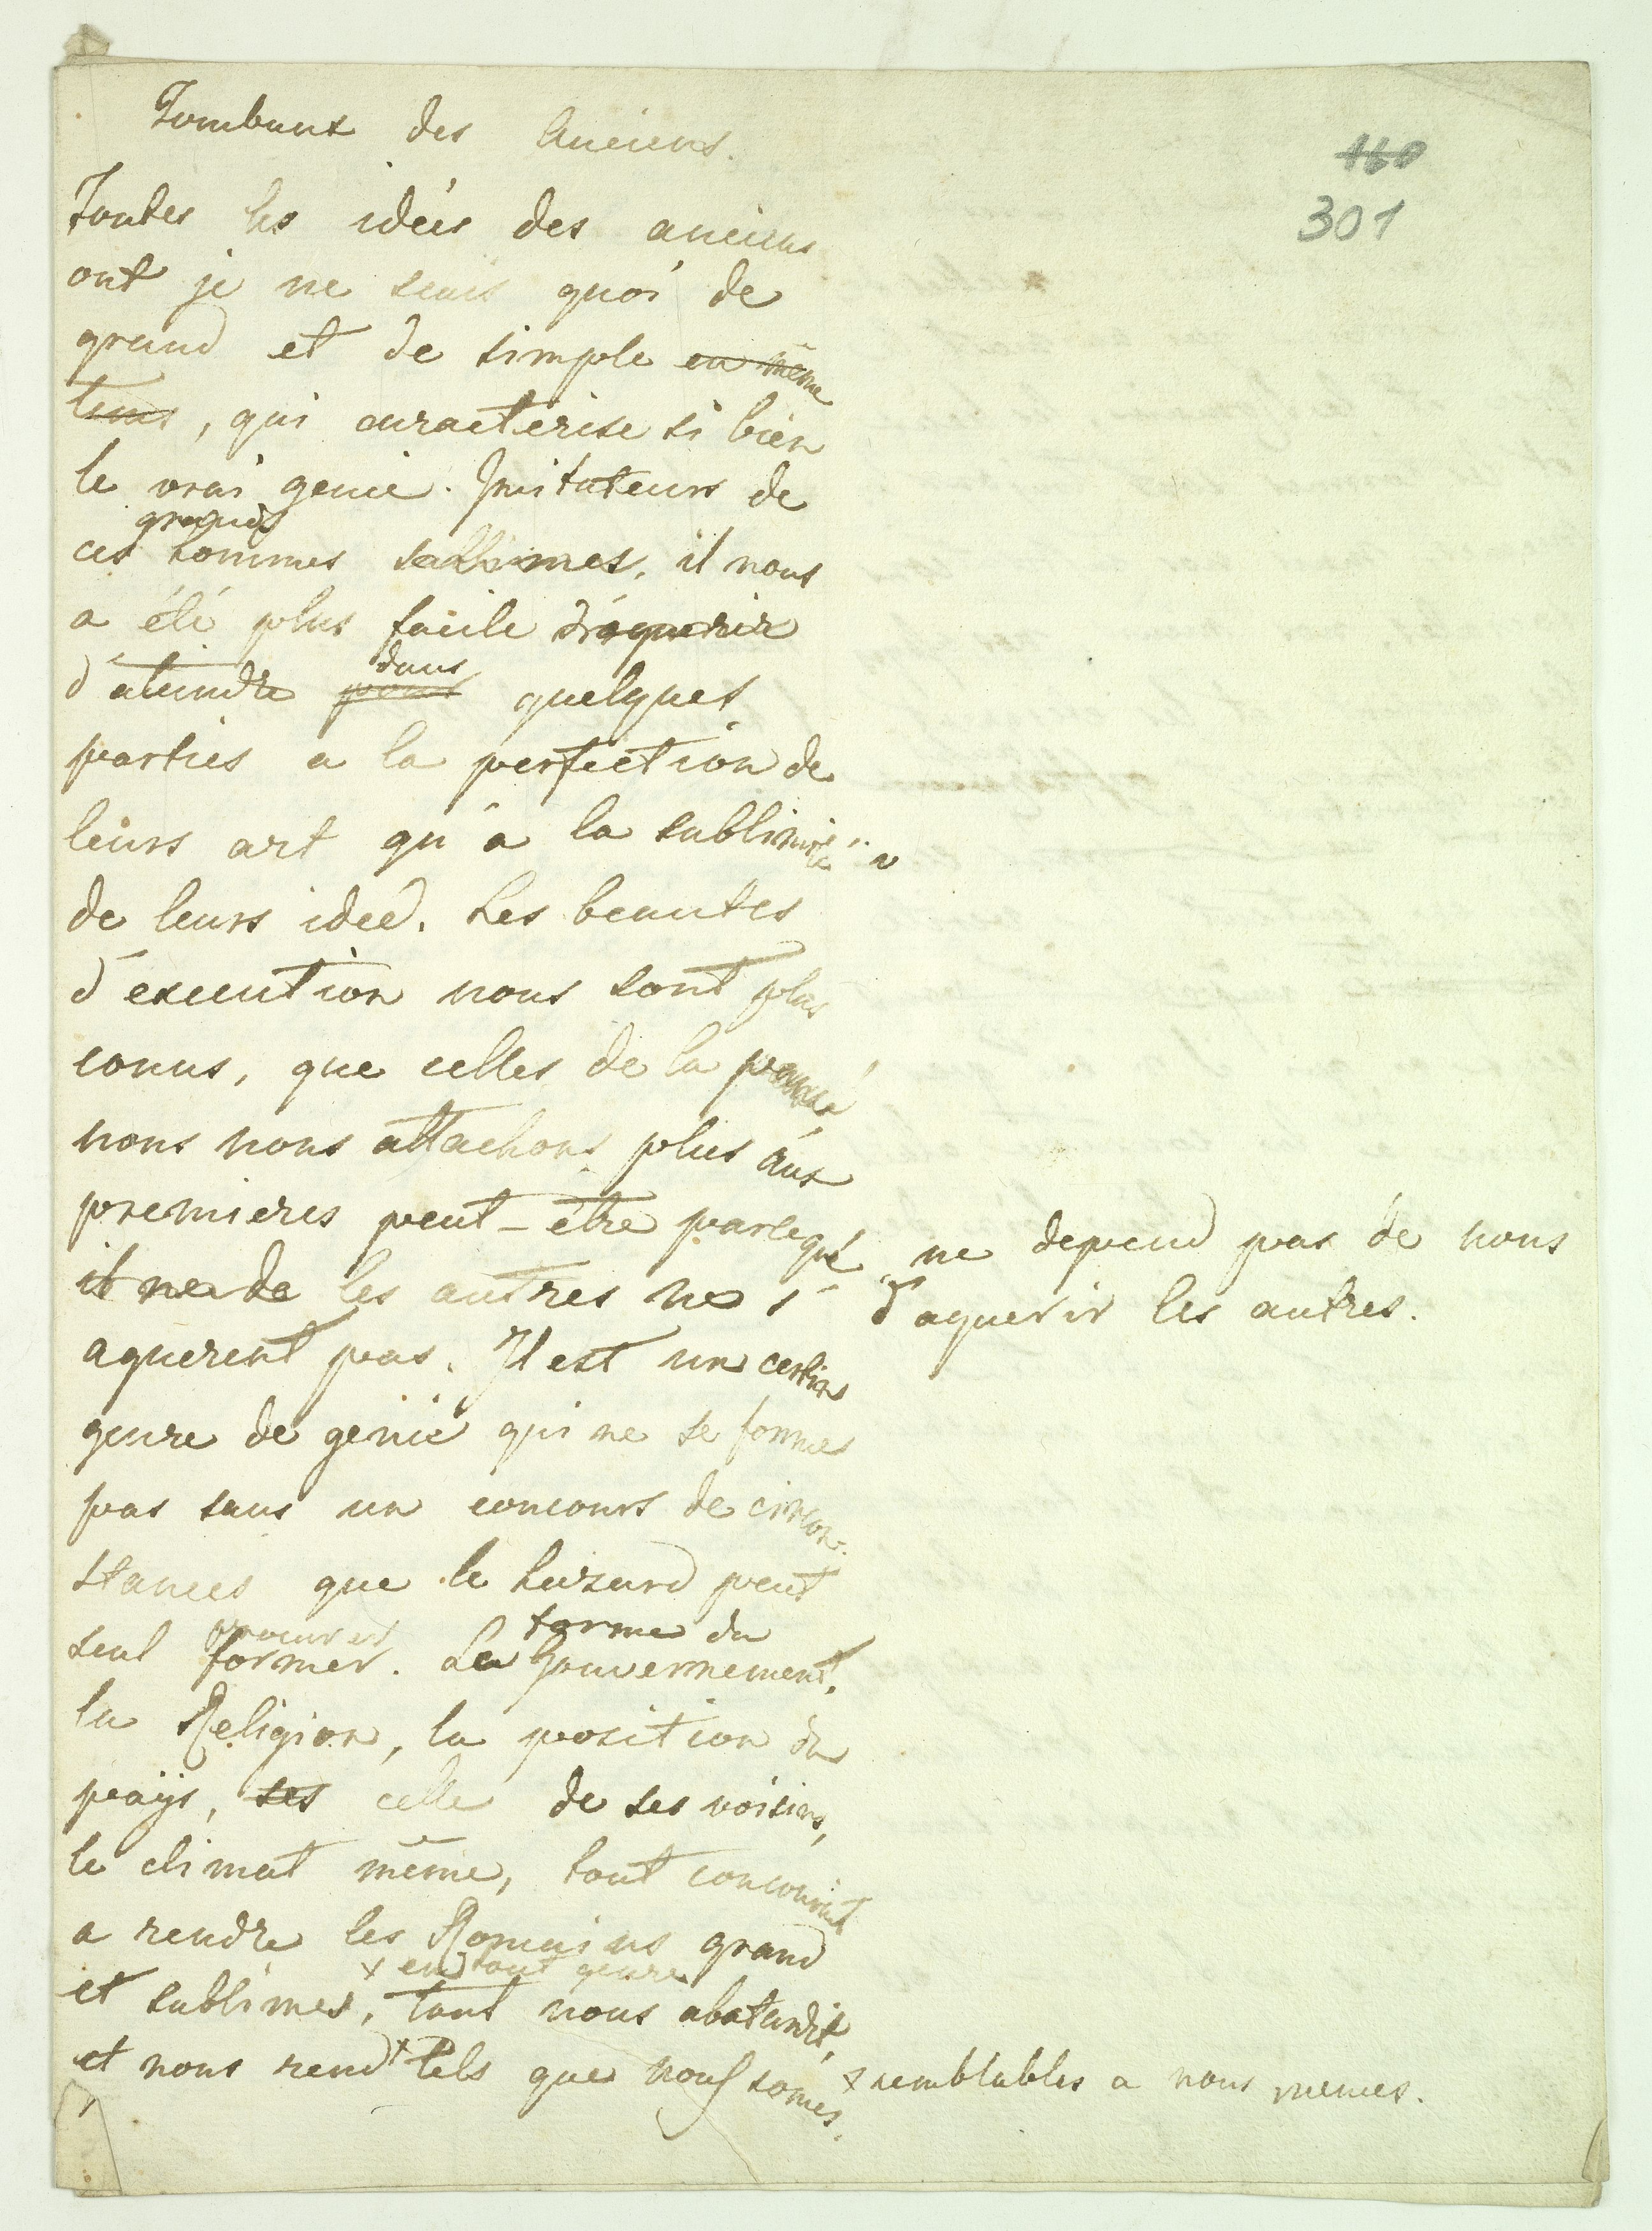 Tombaux des Anciens.
160
301
Toutes les idées des anciens
ont je ne sais quoi de
grand et de simple en même
tems, qui caracterise si bien
le vrai genie. Imitateurs de
grands
ces hommes sublimes, il nous
a été plus facile d'aquerir
dans
d'ateindre pour quelques
parties a la perfection de
leurs art qu'à la sublimité
de leurs ideé. Les beautes
d'execution nous sont plus
conus, que celles de la pensée
nous nous attachons plus aux
premieres peut-être parceque
il ne de les autres ne s'
aquerent pas. Il est un certin
genre de genie qui ne se forme
pas sans un concours de circon-
stances que le hazard peut
procurer forme du
seul former. La Gouvernement,
la Religion, la position du
païjs, ses celle de ses voisins,
le climat même, tout concourut
a rendre les Romains grand
x en tout genre
et sublimes, tout nous abatardit,
et nous rend x tels que nous somes.
ne depend pas de nous
d'aquerir les autres.
x semblables a nous memes.